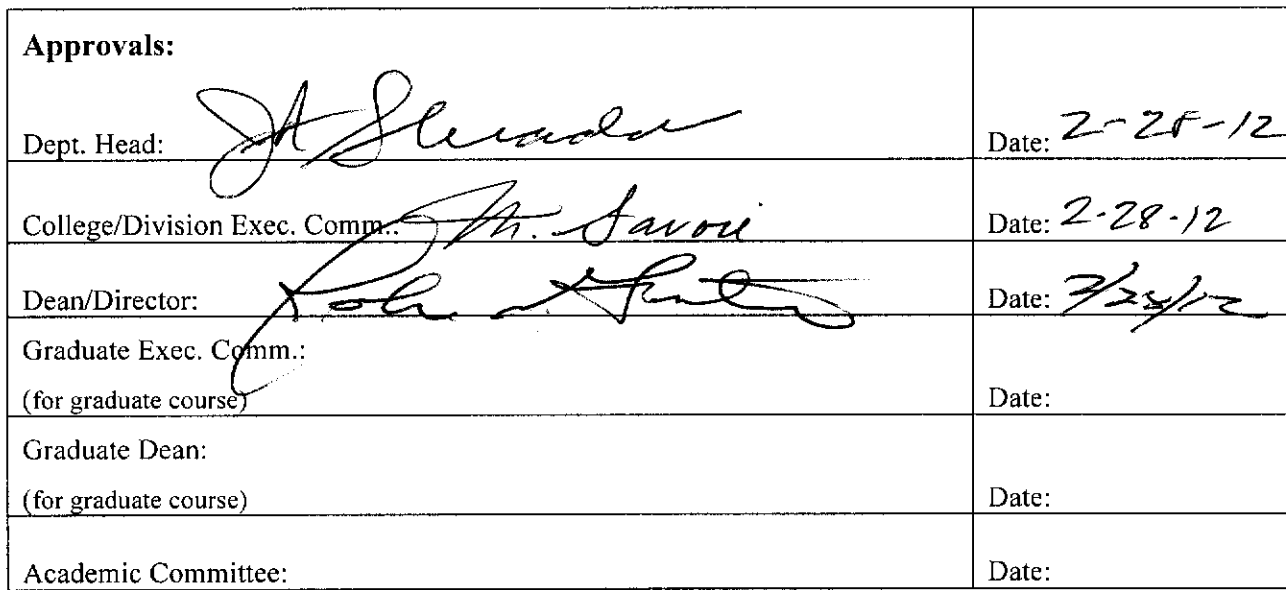 Approvals:
Dept. Head: Date: 2-28-12
College/Division Exec. Comm.: M. Savoie Date: 2-28-12
Dean/Director: Date:
Graduate Exec. Comm.:
(for graduate course) Date:
Graduate Dean:
(for graduate course) Date:
Academic Committee: Date: